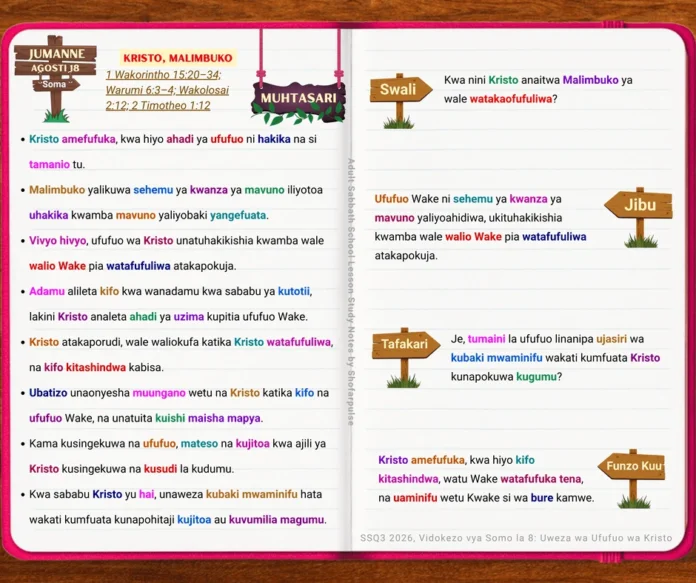 JUMANNE
AGOSTI 18
Soma
KRISTO, MALIMBUKO
1 Wakorintho 15:20–34;
Warumi 6:3–4; Wakolosai
2:12; 2 Timotheo 1:12
MUHTASARI
• Kristo amefufuka, kwa hiyo ahadi ya ufufuo ni hakika na si
tamanio tu.
• Malimbuko yalikuwa sehemu ya kwanza ya mavuno iliyotoa
uhakika kwamba mavuno yaliyobaki yangefuata.
• Vivyo hivyo, ufufuo wa Kristo unatuhakikishia kwamba wale
walio Wake pia watafufuliwa atakapokuja.
• Adamu alileta kifo kwa wanadamu kwa sababu ya kutotii,
lakini Kristo analeta ahadi ya uzima kupitia ufufuo Wake.
• Kristo atakaporudi, wale waliokufa katika Kristo watafufuliwa,
na kifo kitashindwa kabisa.
• Ubatizo unaonyesha muungano wetu na Kristo katika kifo na
ufufuo Wake, na unatuita kuishi maisha mapya.
• Kama kusingekuwa na ufufuo, mateso na kujitoa kwa ajili ya
Kristo kusingekuwa na kusudi la kudumu.
• Kwa sababu Kristo yu hai, unaweza kubaki mwaminifu hata
wakati kumfuata kunapohitaji kujitoa au kuvumilia magumu.
Adult Sabbath School Lesson Study Notes by Shofarpulse
Swali
Kwa nini Kristo anaitwa Malimbuko ya
wale watakaofufuliwa?
Jibu
Ufufuo Wake ni sehemu ya kwanza ya
mavuno yaliyoahidiwa, ukituhakikishia
kwamba wale walio Wake pia watafufuliwa
atakapokuja.
Tafakari
Je, tumaini la ufufuo linanipa ujasiri wa
kubaki mwaminifu wakati kumfuata Kristo
kunapokuwa kugumu?
Funzo Kuu
Kristo amefufuka, kwa hiyo kifo
kitashindwa, watu Wake watafufuka tena,
na uaminifu wetu Kwake si wa bure kamwe.
SSQ3 2026, Vidokezo vya Somo la 8: Uweza wa Ufufuo wa Kristo